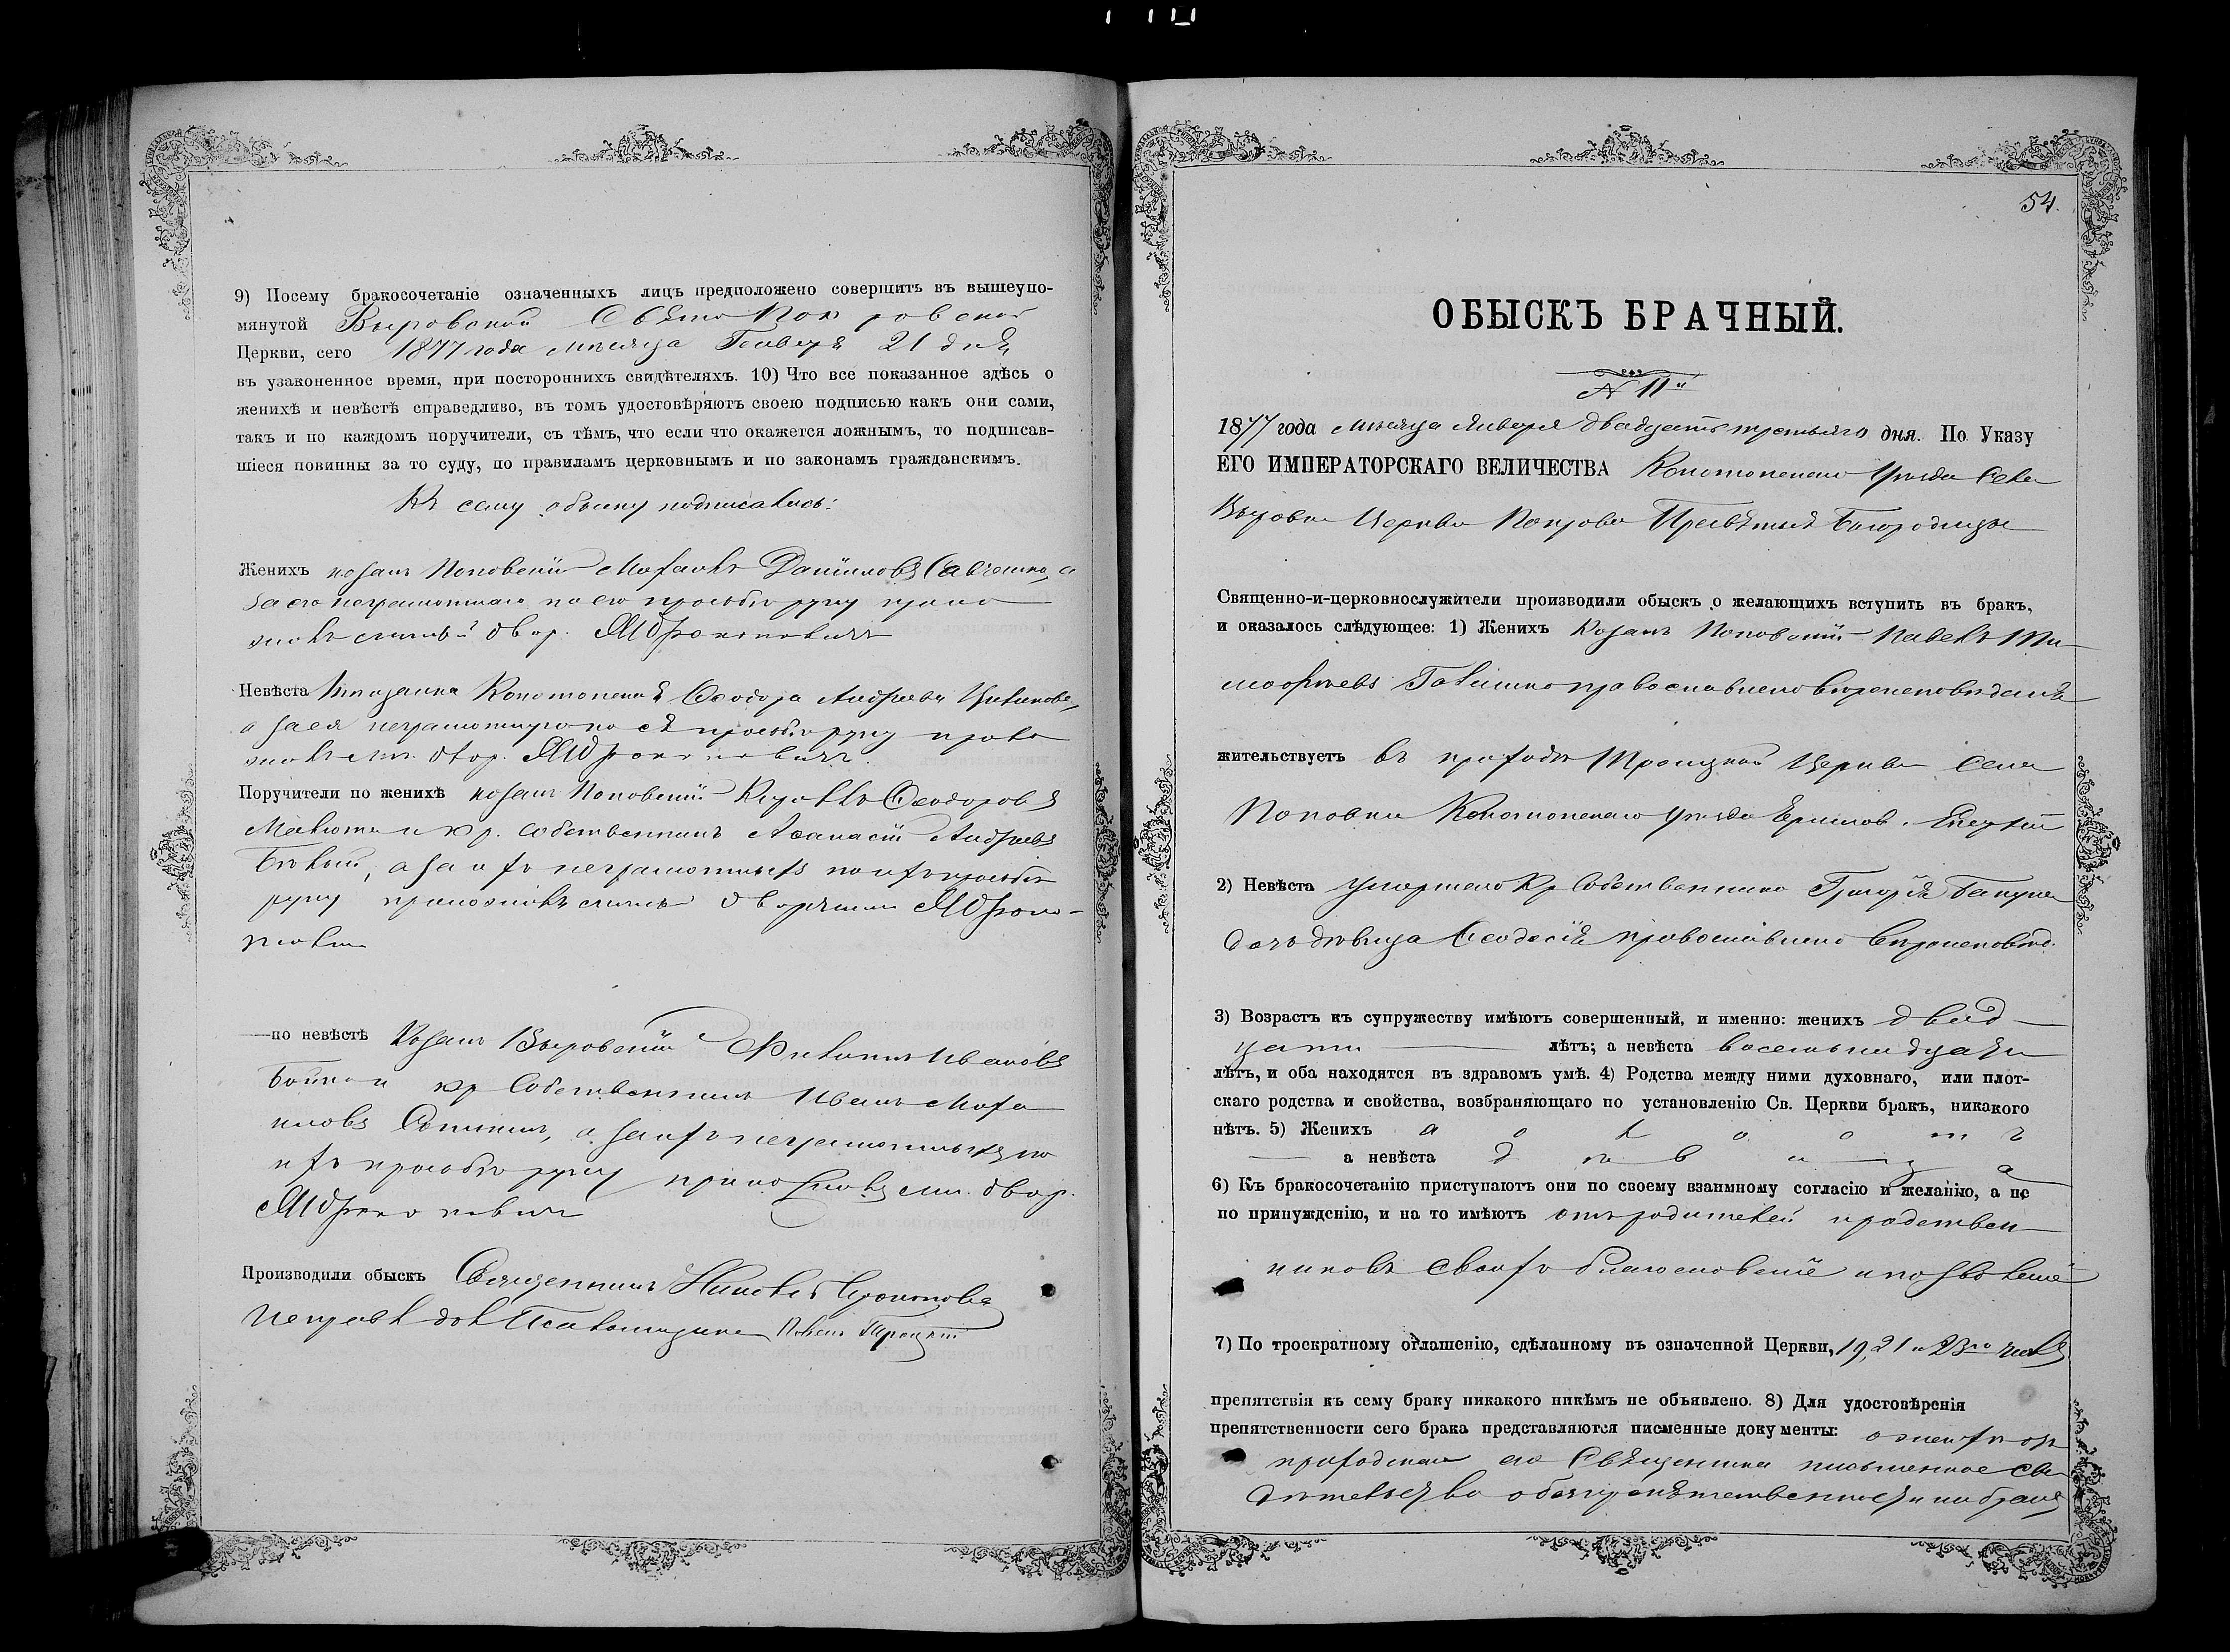 9) Посему бракосочетаніе означенныхъ лицъ предположено совершить въ вышеупо-
мянутой Выровской Свято Покровской
Церкви, сего 1877 года мѣсяца Генваря 21 дня
въ узаконенное время, при постороннихъ свидѣтеляхъ. 10) Что все показанное здѣсь о
женихѣ и невѣстѣ справедливо, въ томъ удостовѣряютъ своею подписью какъ они сами,
такъ и по каждомъ поручители, съ тѣмъ, что если что окажется ложнымъ, то подписав-
шіеся повинны за то суду, по правиламъ церковнымъ и по законамъ гражданскимъ.
Къ сему обыску подписались:
Женихъ козакъ Поповскій Михаилъ Даниловъ а
за его неграмотнаго по его просьбѣ руку прило
жилъ двор.
Невѣста Мѣщанка Конотопская Ѳеодора Андреева
а за ея неграмотную по ея просьбѣ руку прило
жилъ двор.
Поручители по женихѣ козакъ Поповскій Кириллъ Ѳеодоровъ
и кр. собственникъ Аѳанасій Андреевъ
Бѣлый, а за ихъ неграмотныхъ по ихъ просьбѣ
руку приложилъ дворянинъ
—по невѣстѣ Козакъ Выровскій Филипъ Ивановъ
Бойко и кр Собственникъ Иванъ Михаи
ловъ а за ихъ неграмотныхъ по
ихъ просьбѣ руку приложилъ двор.
Производили обыскъ Священникъ
54.
ОБЫСКЪ БРАЧНЫЙ.
N 11й
1877 года мѣсяца Января двадцать третьяго дня. По Указу
ЕГО ИМПЕРАТОРСКАГО ВЕЛИЧЕСТВА Конотопскаго Уѣзда Села
Выровки Церкви Покрова Пресвятыя Богородицы
Священно-и-церковнослужители производили обыскъ о желающихъ вступить въ бракъ,
и оказалось слѣдующее: 1) Женихъ Козакъ Поповскій Павелъ Ти
моѳѣевъ православнаго вѣроисповѣданія
жительствуетъ въ приходѣ Троицкой Церкви села
Поповки Конотопскаго уѣзда
2) Невѣста умершаго Кр Собственника Григорія
дочь дѣвица Ѳеодосія православнаго вѣроисповѣд.
3) Возрастъ къ супружеству имѣютъ совершенный, и именно: женихъ двад
цати лѣтъ; а невѣста восемьнадцати
лѣтъ, и оба находятся въ здравомъ умѣ. 4) Родства между ними духовнаго, или плот-
скаго родства и свойства, возбраняющаго по установленію Св. Церкви бракъ, никакого
нѣтъ. 5) Женихъ холостъ
а невѣста дѣвица
6) Къ бракосочетанію приступаютъ они по своему взаимному согласію и желанію, а не
по принужденію, и на то имѣютъ отъ родителей и родствен
никовъ своихъ благословеніе и позволеніе
7) По троекратному оглашенію, сдѣланному въ означенной Церкви, 19, 21 и 23го числъ
препятствія къ сему браку никакого никѣмъ не объявлено. 8) Для удостовѣренія
препятственности сего брака представляются писменные документы: о женихѣ отъ
приходскаго его Священника письменное сви
дѣтельство о безпрепятственности на бракъ